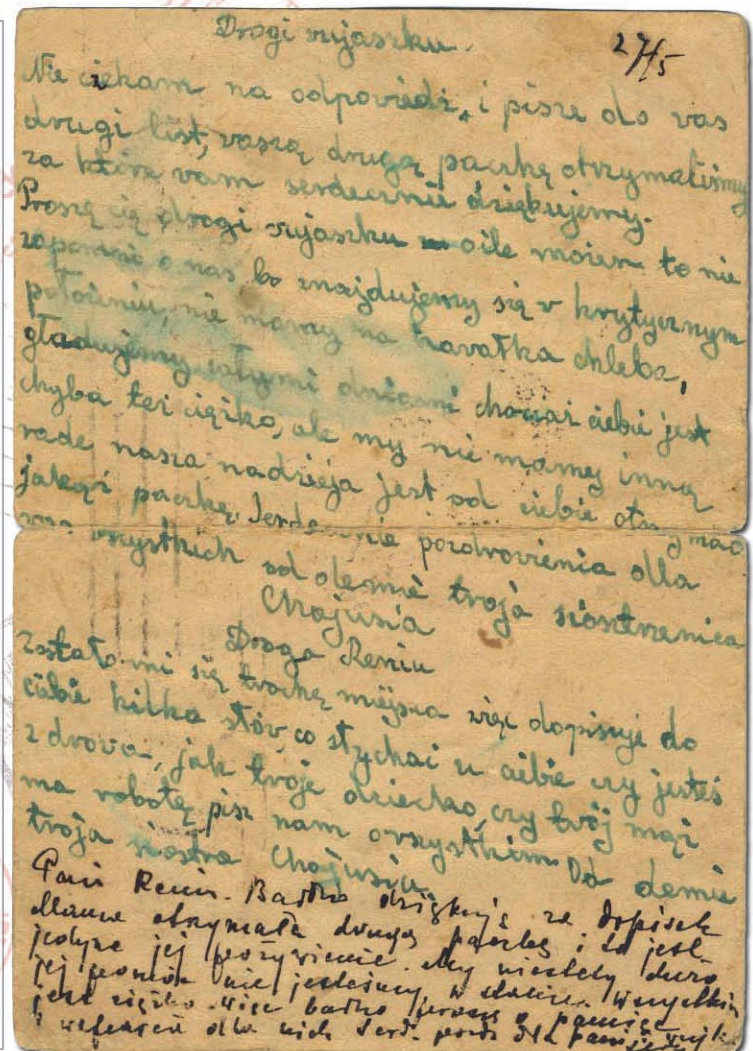 Drogi vujaszku.
27/5
Nie czekam na odpoviedz, i pisze do vas
drugi list, vaszą drugą paczkę otrzymaliśmy
za które vam serdecznie dziękujemy.
Proszę cię drogi vujaszku oile możesz to nie
zapomni o nas, bo znajdujemy się v krytycznym
położeniu, nie mamy na kavałka chleba,
gładujemy całymi dniami chociaż ciebie jest
chyba też ciężko, ale my nie mamy inną
radę, nasza nadzieja jest od ciebie otrzymać
jakąś paczkę. Serdecznie pozdrovienia dlla
vas vszystkich od demie tvoja siostrzenica
Chajusia
Droga Reniu
Zostało mi się trochę miejsca więc dopisuję do
ciebie kilka słóv, co słychać u ciebie czy jesteś
zdrova, jak tvoje dziecko, czy tvój mąż
ma robotę pisz nam ovszystkim Od demie
tvoja siostra Chajusia.
Pani Reniu. Bardzo dziękuję za dopisek
Mama otrzymała drugą paczkę i to jest
jedyne jej pożywienie. My niestety dużo
jej pomóc nie jesteśmy w stanie. Wszystkim
jest ciężko więc bardzo proszę o pamięć
dla nich Serd. pozdr. dla